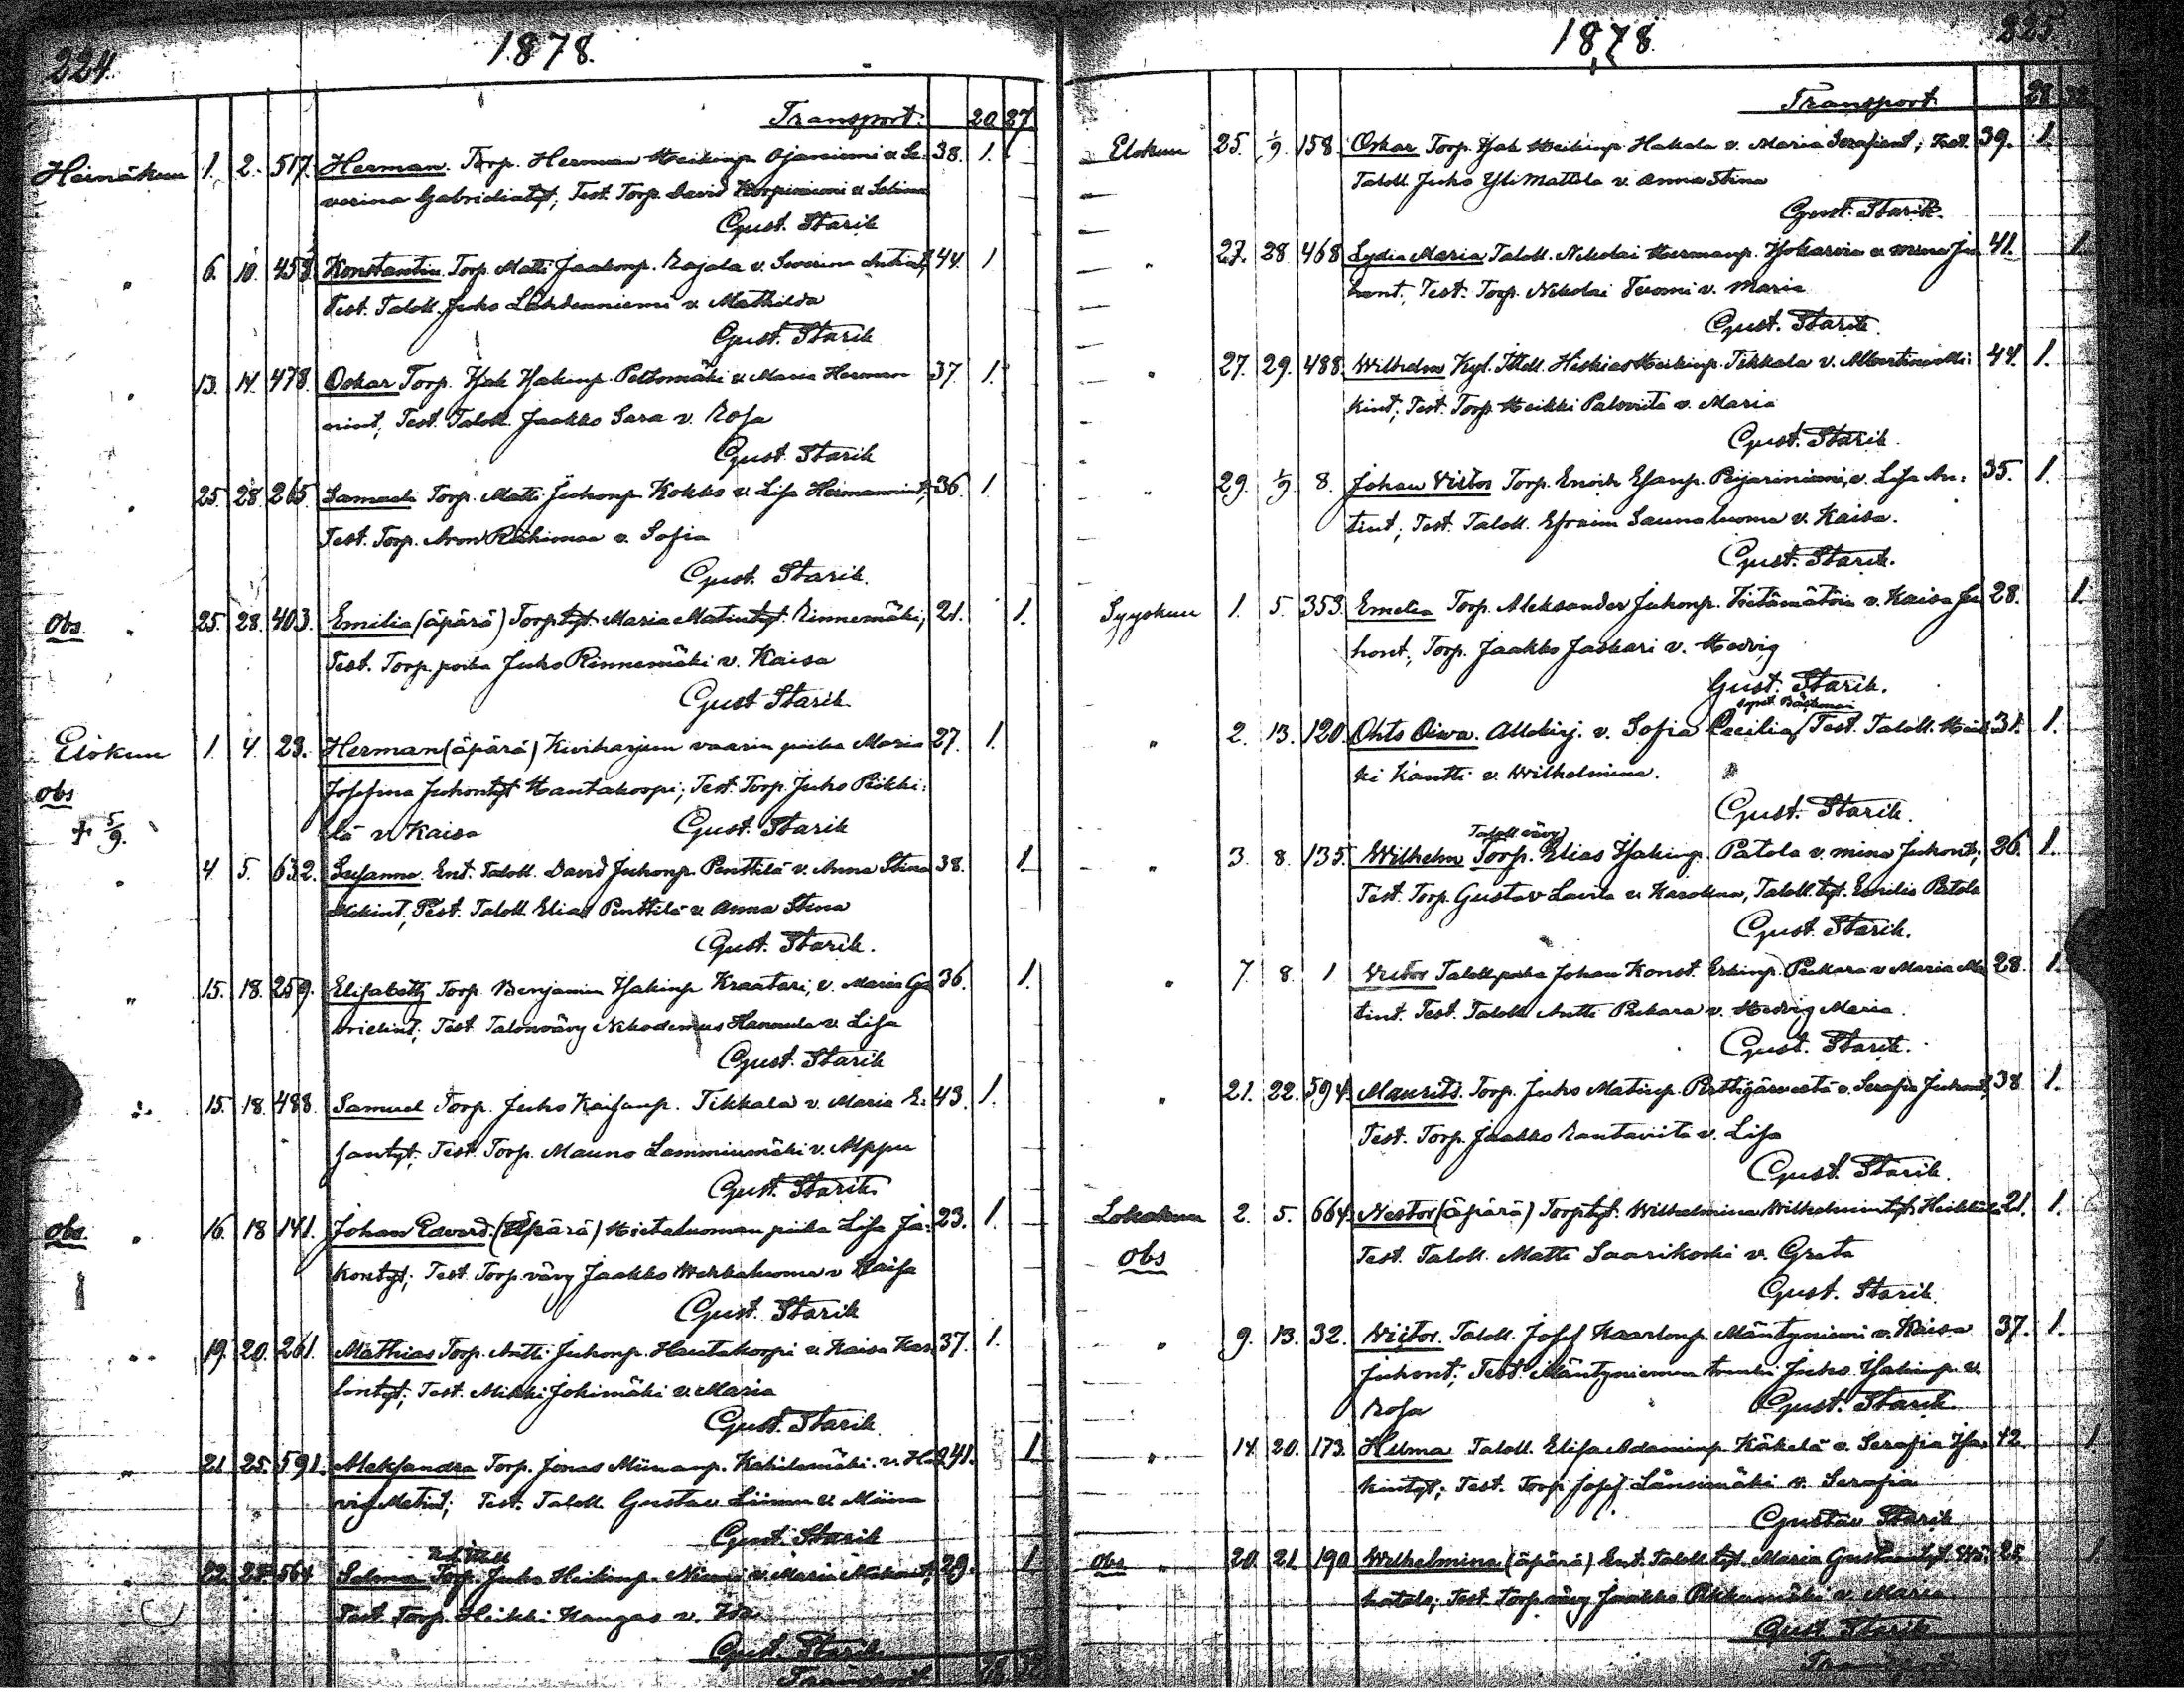 224.
1878.
Transport: 20 27.
Heinäkuu 1. 2. 517. Herman. Torp. Herman Heikinp. Ojaniemi v. Se- 38. 1.
verina Gabrielintyt; Test. Torp. David Korpiniemi v. Selima
Gust. Starik
" 6. 10. 458. Konstantin Torp. Matti Jaakonp. Rajala v. Severina Antint; 44. 1
Test. Taloll. Juho Lähdeuniemi v. Mathilda
Gust. Starik
" 13. 14. 478. Oskar Torp. Isak Isakinp. Peltomäki v. Maria Herman 37. 1.
nint; Test. Taloll. Jaakko Sara v. Rosa
Gust. Starik
" 25. 28. 265. Samueli Torp. Matti Juhonp. Kokko v. Lisa Hermannint; 36. 1
Test. Torp. Aron Riihimaa v. Sofia
Gust. Starik.
Obs. " 25. 28. 403. Emilia (äpärä) Torp.tyt. Maria Matintyt. Rinnemäki; 21. 1.
Test. Torp. poika Juho Rinnemäki v. Kaisa
Gust Starik.
Elokuu 1. 4. 23. Herman (äpärä) Kiviharjun vaarin piika Maria 27. 1.
obs
Josefina Juhontyt Hautakorpi; Test. Torp. Juho Pikki-
+ 5/9.
lä v. Kaisa Gust. Starik
" 4. 5. 632. Susanna. Ent. Taloll. David Juhonp. Penttilä v. Anna Stina 38. 1
Mikint; Test. Taloll. Elias Penttilä v. Anna Stina
Gust. Starik.
" 15. 18. 259. Elisabeth Torp. Benjamin Isakinp. Kraatari, v. Maria Ga 36. 1.
brielint; Test. Talonvävy Nikodemus Hannula v. Lisa
Gust. Starik
" 15. 18. 488. Samuel Torp. Juho Kaisanp. Tikkala v. Maria E- 43. 1.
santyt; Test. Torp. Mauno Lamminmäki v. Alppu
Gust. Starik
Obs. " 16. 18 141. Johan Edvard. (Äpärä) Hietaluoman piika Lisa Ja- 23. 1.
kontyt; Test. Torp. vävy Jaakko Wehkaluoma v. Kaisa
Gust. Starik
" 19. 20. 261. Mathias Torp. Antti Juhonp. Hautakorpi v. Kaisa Kas 37. 1.
lontyt; Test. Mikki Jokimäki v. Maria
Gust. Starik
" 21. 25. 591. Aleksandra Torp. Jonas Miinanp. Kahilamäki v. He 41. 1
vig Matint; Test. Taloll. Gustav Liimu v. Miina
Gust Starik
" 22. 25. 564 Selma Torp. Juho Heikinp. Niemi v. Maria 29. 1
Test. Torp. Heikki Kangas v. Ida
Gust. Starik
Transport. 28 32
1878.
225.
Transport 28 32
Elokuu 25. 1/9. 158 Oskar Torp. Isak Heikinp. Hakala v. Maria Serafiant; Test. 39. 1.
Taloll. Juho Yli Mattila v. Anna Stina
Gust. Starik.
" 27. 28 468 Lydia Maria Taloll. Nikolai Hermanp. Isokarvia v. Miina Ju 41. 1.
hont; Test. Torp. Nikolai Teromi v. Maria
Gust. Starik.
" 27. 29. 488. Wilhelm Kyl. Itsell. Hiskias Heikinp. Tikkala v. Albertina Mi- 44. 1.
kint; Test. Torp. Heikki Palovuita v. Maria
Gust. Starik.
" 29. 1/9. 8. Johan Viktor Torp. Enoch Esanp. Rijariniemi, v. Lisa An- 35. 1.
tint; Test. Taloll. Efraim Saunaluoma v. Kaisa.
Gust. Starik.
Syyskuu 1. 5. 353. Emelia Torp. Aleksander Juhonp. Tietämätöin v. Kaisa Ju 28. 1.
hont; Torp. Jaakko Jaskari v. Hedvig
Gust. Starik.
" 2. 13. 120. Ohto Oiva. Allekirj. v. Sofia Cecilia synt. Bäckman Test. Taloll. Heik 31. 1.
ki Kantti v. Wilhelmina.
Gust. Starik.
Taloll. vävy
" 3. 8. 135. Wilhelm Torp. Elias Isakinp. Patola v. Mina Juhont; 26. 1.
Test. Torp. Gustav Lavila v. Karolina, Taloll. tyt. Emilia Patola
Gust. Starik.
" 7. 8. 1 Victor Taloll. poika Johan Konst. Erkinp. Peckara v. Maria Ma 28. 1
tint. Test. Taloll. Antti Peckara v. Hedvig Maria.
Gust. Starik.
" 21. 22. 594. Maurits. Torp. Juho Matinp. Pettijärveetä v. Serafia Juhont; 38 1.
Test. Torp. Jaakko Rautaviita v. Lisa
Gust. Starik.
Lokakuu 2. 5. 664. Nestor (äpärä) Torp.tyt. Wilhelmina Wilhelmintyt. 21. 1.
obs
Test. Taloll. Matti Saarikoski v. Greta
Gust. Starik.
" 9. 13. 32. Victor. Taloll. Josef Kaarlonp. Mäntyniemi v. Kaisa 37. 1.
Juhont; Test. Mäntyniemen Juho Isakinp. v.
Rosa Gust. Starik.
" 14. 20. 173. Hilma Taloll. Elisa Adaminp. Käkelä v. Serafia Isa- 42. 1
kintyt; Test. Torp. Josef Länsimäki v. Serafia
Gustav Starik
obs " 20. 21. 190 Wilhelmina (äpärä) Ent. Taloll. tyt. Maria Gustavintyt. 25. 1
katalo; Test. Torp. vävy Jaakko Pikkumäki v. Maria
Gust Starik
Transport